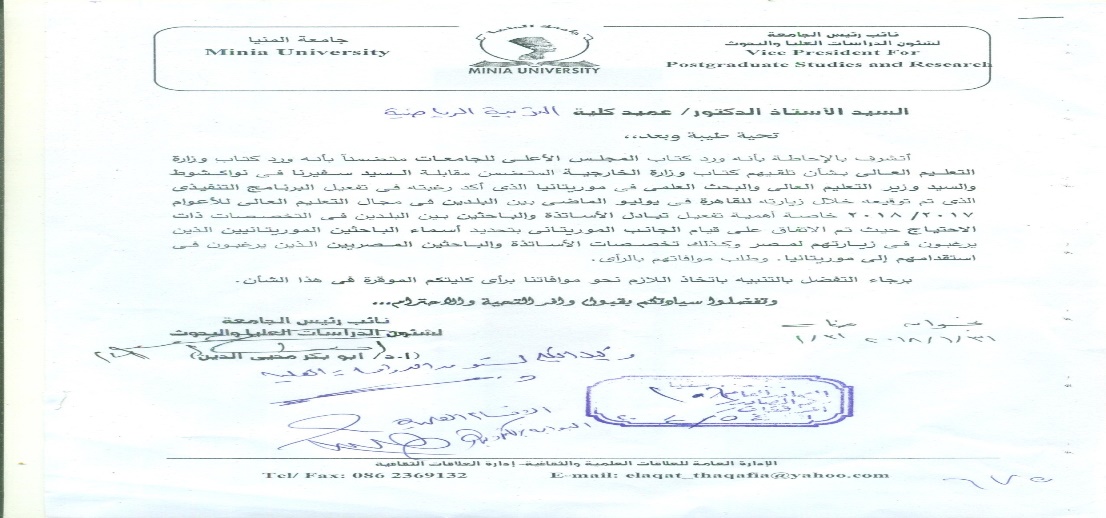 جامعة المنيا
Minia University
MINIA UNIVERSITY
نائب رئيس الجامعة
لشئون الدراسات العليا والبحوث
Vice President For
Postgraduate Studies and Research
السيد الأستاذ الدكتور/ عميد كلية التربية الرياضية
تحية طيبة وبعد،،
أتشرف بالإحاطة بأنه ورد كتاب المجلس الأعلى للجامعات متضمناً بأنه ورد كتاب وزارة
التعليم العالى بشأن تلقيهم كتاب وزارة الخارجية المتضمن مقابلة السيد سفيرنا فى نواكشوط
والسيد وزير التعليم العالى والبحث العلمى فى موريتانيا الذى أكد رغبته فى تفعيل البرنامج التنفيذى
الذى تم توقيعه خلال زيارته للقاهرة فى يوليو الماضى بين البلدين فى مجال التعليم العالى للأعوام
٢٠١٨/٢٠١٧ خاصة أهمية تفعيل تبادل الأساتذة والباحثين بين البلدين فى التخصصات ذات
الاحتياج حيث تم الاتفاق على قيام الجانب الموريتانى بتحديد أسماء الباحثين الموريتانيين الذين
يرغبون فى زيارتهم لمصر وكذلك تخصصات الأساتذة والباحثين المصريين الذين يرغبون فى
استقدامهم إلى موريتانيا، وطلب موافاتهم بالرأى.
برجاء التفضل بالتنبيه باتخاذ اللازم نحو موافاتنا برأى كليتكم الموقرة فى هذا الشأن.
وتفضلوا سيادتكم بقبول وافر التحية والاحترام...
نائب رئيس الجامعة
لشئون الدراسات العليا والبحوث
(ا.د/ أبو بكر محيى الدين)
٢٠١٨/١/٣١
١/٣١
الإدارة العامة للعلاقات العلمية والثقافية- إدارة العلاقات الثقافية
Tel/ Fax: 086 2369132 E-mail: elaqat_thaqafia@yahoo.com
٦٧٥